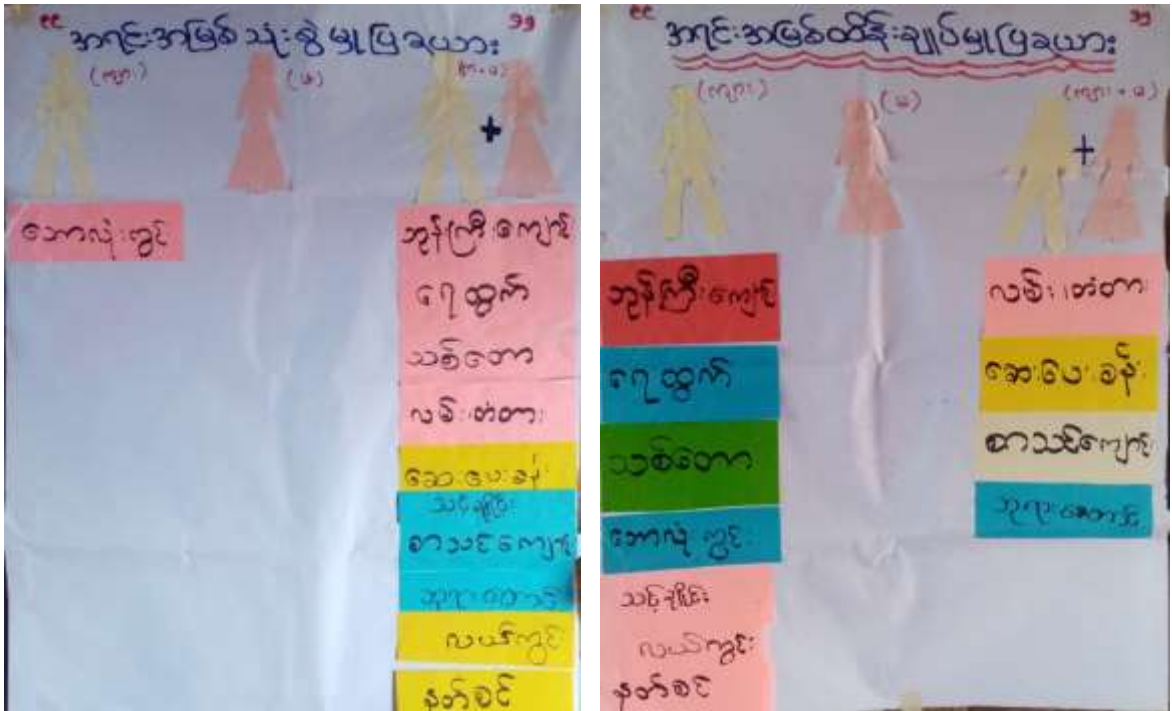 “ အရင်းအမြစ်သုံးစွဲမှုပြဇယား ”
(ကျား)
(မ)
(ကျား + မ)
+
ဘောလုံးကွင်း
ဘုန်းကြီးကျောင်း
ရေထွက်
သစ်တော
လမ်း၊တံတား
ဆေးပေးခန်း
သင်္ချိုင်း
စာသင်ကျောင်း
ဘုရားစေတီ
လယ်ကွင်း
နတ်စင်
“ အရင်းအမြစ်ထိန်းချုပ်မှုပြဇယား ”
(ကျား)
(မ)
(ကျား + မ)
+
ဘုန်းကြီးကျောင်း
ရေထွက်
သစ်တော
ဘောလုံးကွင်း
သင်္ချိုင်း
လယ်ကွင်း
နတ်စင်
လမ်း၊တံတား
ဆေးပေးခန်း
စာသင်ကျောင်း